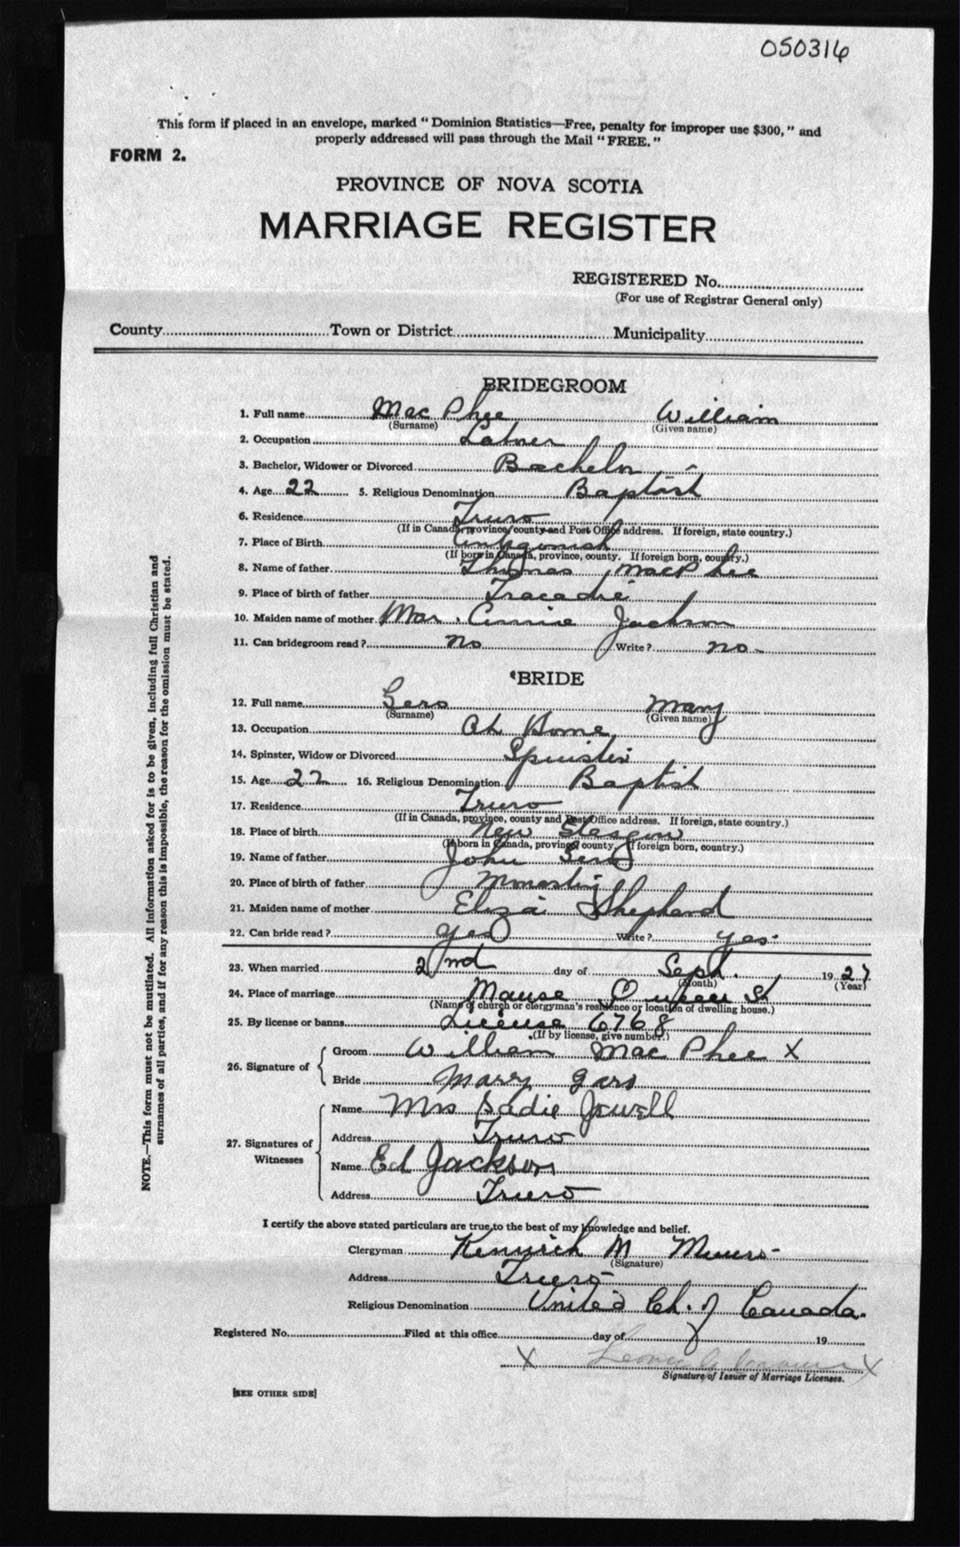 050316
This form if placed in an envelope, marked "Dominion Statistics—Free, penalty for improper use $300," and
properly addressed will pass through the Mail "FREE."
FORM 2.
PROVINCE OF NOVA SCOTIA
MARRIAGE REGISTER
REGISTERED No.
(For use of Registrar General only)
County Town or District Municipality
BRIDEGROOM
1. Full name Mac Phee William
(Surname) (Given name)
2. Occupation Labrer
3. Bachelor, Widower or Divorced Bachelor
4. Age 22 5. Religious Denomination Baptist
6. Residence Truro
(If in Canada, province, county and Post Office address. If foreign, state country.)
7. Place of Birth Antigonish
(If born in Canada, province, county. If foreign born, country.)
8. Name of father Thomas MacPhee
9. Place of birth of father Tracadie
10. Maiden name of mother Mar. Annie Jackson
11. Can bridegroom read? no Write? no
BRIDE
12. Full name Gero Mary
(Surname) (Given name)
13. Occupation At Home
14. Spinster, Widow or Divorced Spinster
15. Age 22 16. Religious Denomination Baptist
17. Residence Truro
(If in Canada, province, county and Post Office address. If foreign, state country.)
18. Place of birth New Glasgow
(If born in Canada, province, county. If foreign born, country.)
19. Name of father John Gero
20. Place of birth of father
21. Maiden name of mother Eliza Shepherd
22. Can bride read? yes Write? yes
23. When married 2nd day of Sept. 1927
(Month) (Year)
24. Place of marriage Manse Queen St
(Name of church or clergyman's residence or location of dwelling house.)
25. By license or banns License 6768
(If by license, give number.)
26. Signature of Groom William Mac Phee X
Bride Mary Gero
27. Signatures of Witnesses Name Mrs Sadie Jewell
Address Truro
Name Ed Jackson
Address Truro
I certify the above stated particulars are true, to the best of my knowledge and belief.
Clergyman M Munro
(Signature)
Address Truro
Religious Denomination United Ch. of Canada.
Registered No. Filed at this office day of 19
X X
Signature of Issuer of Marriage Licenses.
[SEE OTHER SIDE]
NOTE.—This form must not be mutilated. All information asked for is to be given, including full Christian and
surnames of all parties, and if for any reason this is impossible, the reason for the omission must be stated.